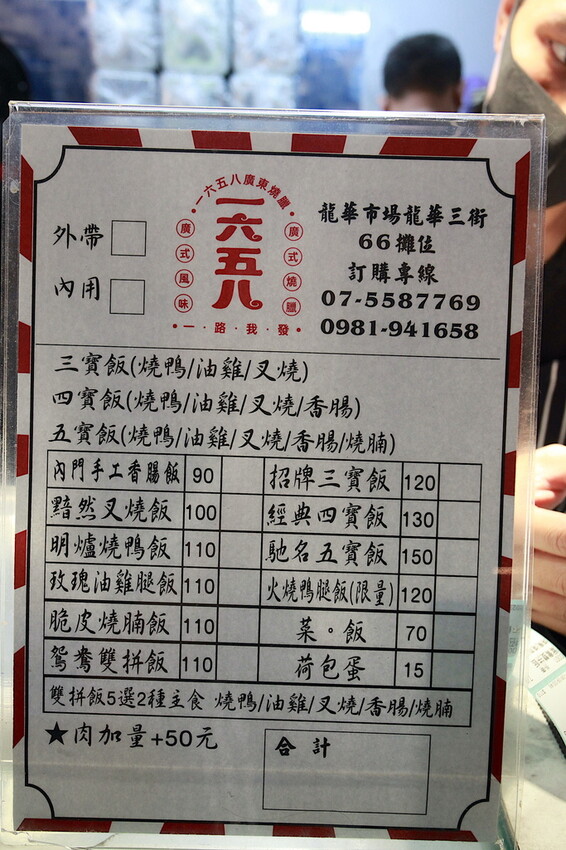 外帶
內用
一六五八廣東燒臘
一六五八
廣式風味
廣式燒臘
一路我發
龍華市場龍華三街
66攤位
訂購專線
07-5587769
0981-941658
三寶飯(燒鴨/油雞/叉燒)
四寶飯(燒鴨/油雞/叉燒/香腸)
五寶飯(燒鴨/油雞/叉燒/香腸/燒腩)
內門手工香腸飯 90 招牌三寶飯 120
黯然叉燒飯 100 經典四寶飯 130
明爐燒鴨飯 110 馳名五寶飯 150
玫瑰油雞腿飯 110 火燒鴨腿飯(限量) 120
脆皮燒腩飯 110 菜。飯 70
鴛鴦雙拼飯 110 荷包蛋 15
雙拼飯5選2種主食 燒鴨/油雞/叉燒/香腸/燒腩
★肉加量+50元
合計